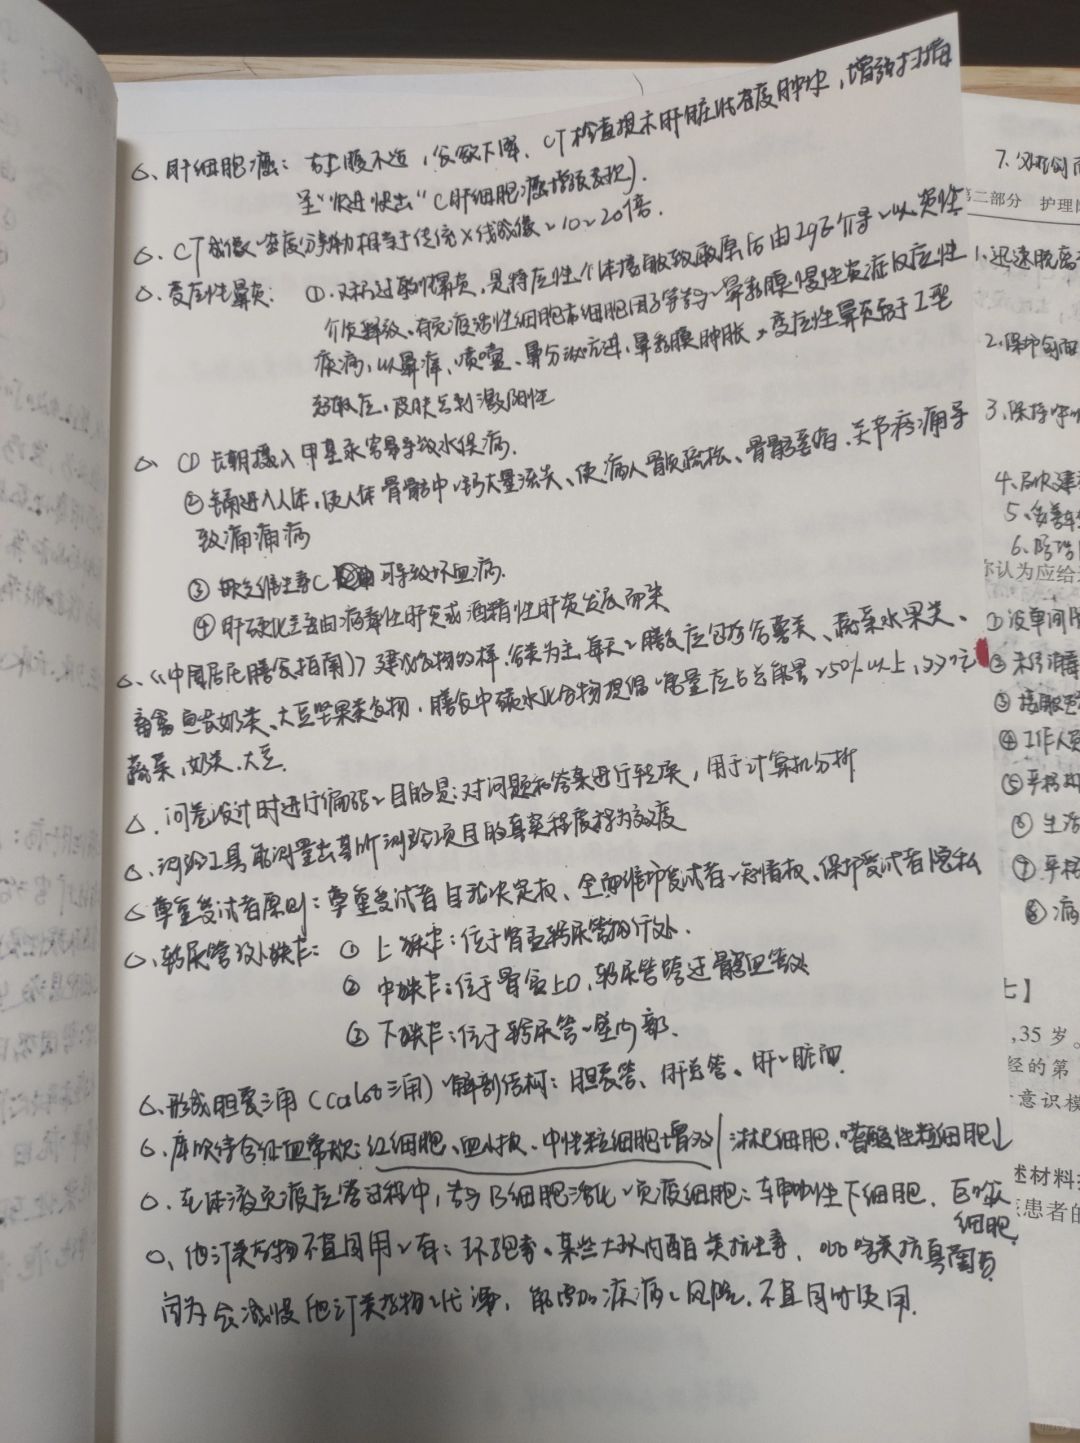 △、肝细胞癌：右上腹不适，食欲下降，CT检查提示肝脏低密度肿块，增强扫描
呈“快进快出”（肝细胞癌增强表现）.
△. CT成像~密度分辨力相当于传统X线成像~10~20倍.
△. 变应性鼻炎： ①.又称过敏性鼻炎，是特应性个体接触致敏原后由IgE介导~以炎性
介质释放、有免疫活性细胞和细胞因子等参与~鼻黏膜慢性炎症反应性
疾病，以鼻痒、喷嚏、鼻分泌亢进、鼻黏膜肿胀，变应性鼻炎属于I型
超敏反应，皮肤点刺激阳性
△ ① 长期摄入甲基汞容易导致水俣病.
② 镉进入人体，使人体骨骼中~钙大量流失、使病人骨质疏松、骨骼萎缩、关节疼痛导
致痛痛病
③ 缺乏维生素C 可导致坏血病.
④ 肝硬化主要由病毒性肝炎或酒精性肝炎发展而来
△、《中国居民膳食指南》建议食物多样，谷类为主，每天~膳食应包括谷薯类、蔬菜水果类、
畜禽鱼蛋奶类、大豆坚果类食物，膳食中碳水化合物提供~能量应占总能量~50%以上，多吃
蔬菜，奶类、大豆.
△. 问卷设计时进行编码~目的是：对问题和答案进行转换，用于计算机分析
△. 测验工具能测量出其所测验项目的真实程度称为效度
△ 尊重受试者原则：尊重受试者自我决定权、全面维护受试者~知情权、保护受试者隐私
△、输尿管3处狭窄： ① 上狭窄：位于肾盂输尿管移行处.
② 中狭窄：位于骨盆上口，输尿管跨过髂血管处
③ 下狭窄：位于输尿管~壁内部.
△. 形成胆囊三角（Calot三角）~解剖结构：胆囊管、肝总管、肝~脏面
△. 库欣综合征血常规：红细胞、血小板、中性粒细胞增多/淋巴细胞、嗜酸性粒细胞↓
△. 在体液免疫应答过程中，参与B细胞活化~免疫细胞：辅助性T细胞，巨噬
细胞
△. 他汀类药物不宜同用~有：环孢素、某些大环内酯类抗生素，吡咯类抗真菌药
因为会减慢他汀类药物~代谢，能增加疾病~风险，不宜同时使用.
第二部分 护理
1.迅速脱离
2.保护创面
3、保持呼吸
4、尽快建
5、
6、
你认为应给
①
②
③
④工作人员
⑤严格
⑥ 生活
⑦ 严格
⑧ 病
七】
,35岁。
经的第
意识模
述材料
患者的